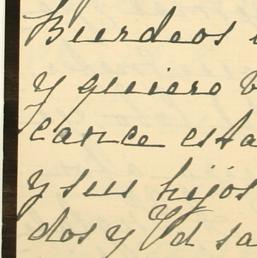 Burdeos
y quiero
cance esta
y sus hijos
dos y Vd sa